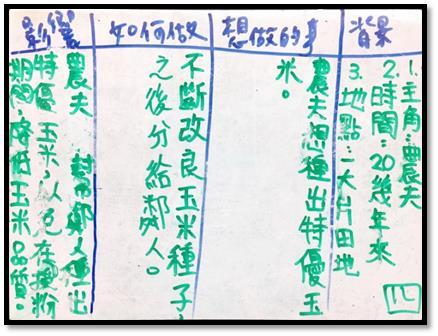 背景
1.主角:農夫
2.時間:20幾年來
3.地點:一大片田地
四
想做的事
農夫想種出特優玉
米。
如何做
不斷改良玉米種子,
之後分給鄰人。
影響
農夫 幫鄰人種出
特優玉米,以免在授粉
期間,降低玉米品質。